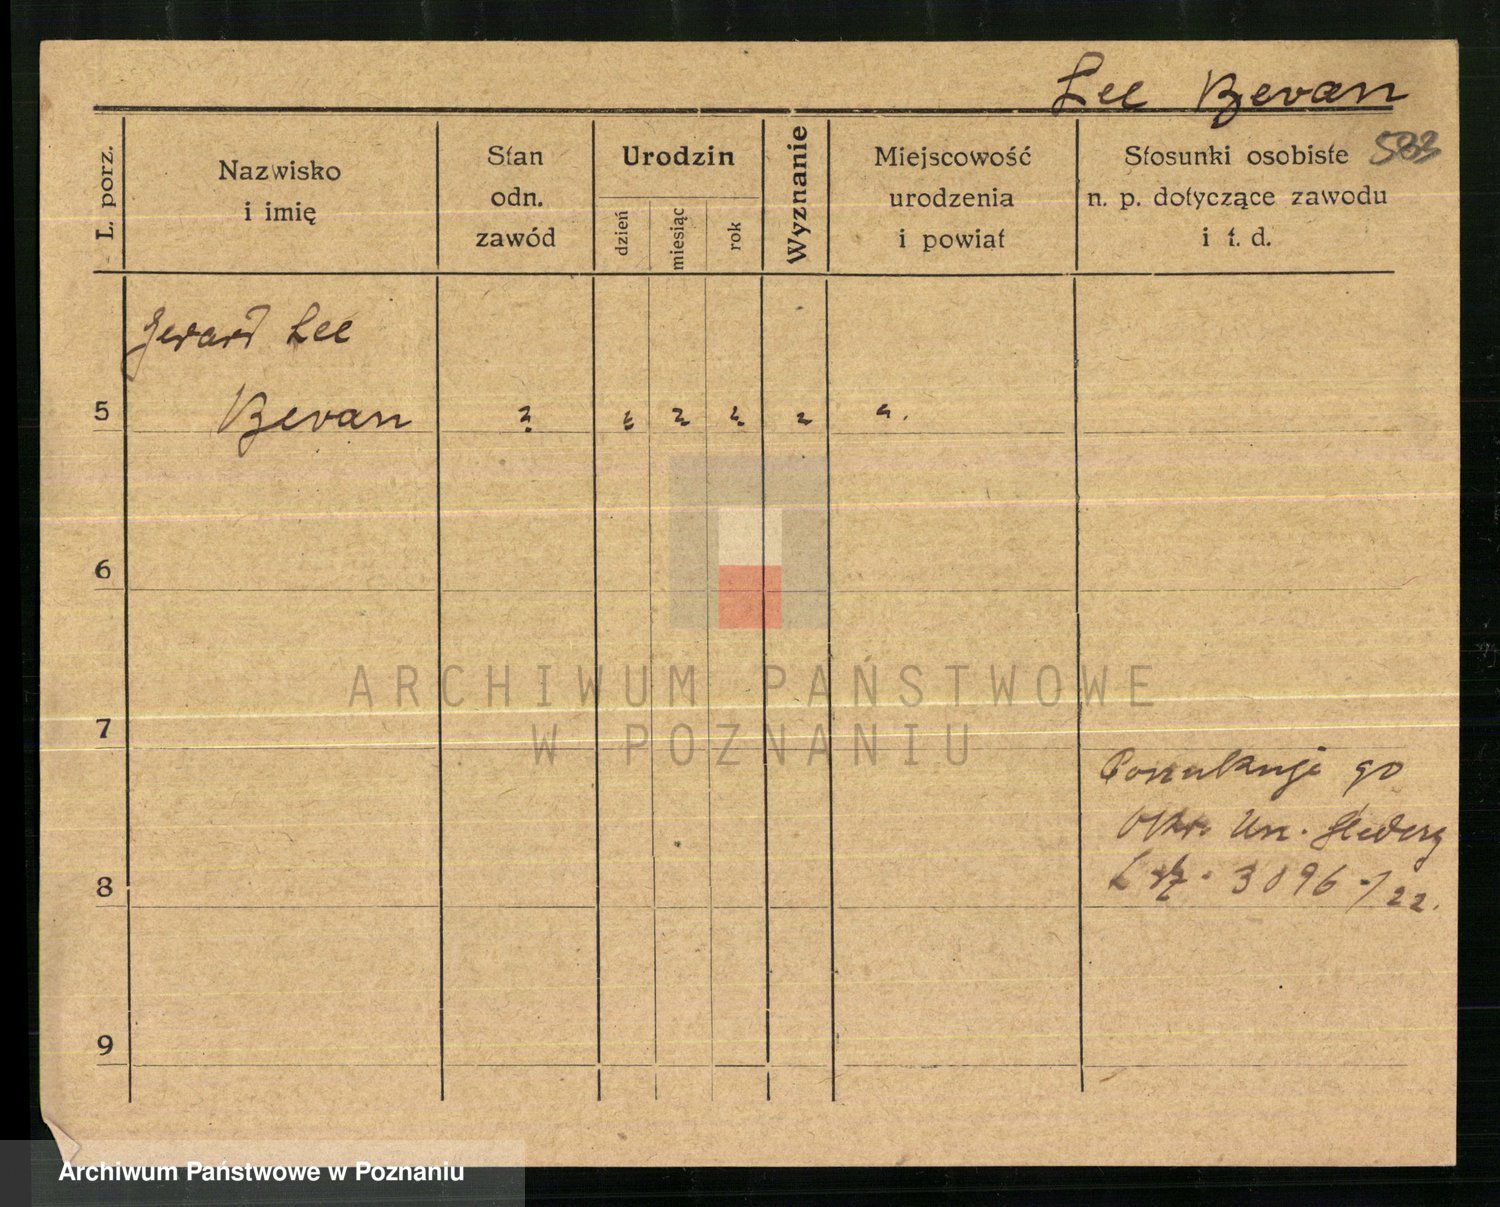 Lee Bevan
583
L. porz.
Nazwisko
i imię
Stan
odn.
zawód
Urodzin
dzień
miesiąc
rok
Wyznanie
Miejscowość
urodzenia
i powiat
Stosunki osobiste
n. p. dotyczące zawodu
i t. d.
Gerard Lee
5 Bevan ? ? ? ? ? ?
6
7
8
9
Poszukuje go
Okr. Urz. Śledczy
L dz. 3096./22.
ARCHIWUM PAŃSTWOWE
W POZNANIU
Archiwum Państwowe w Poznaniu